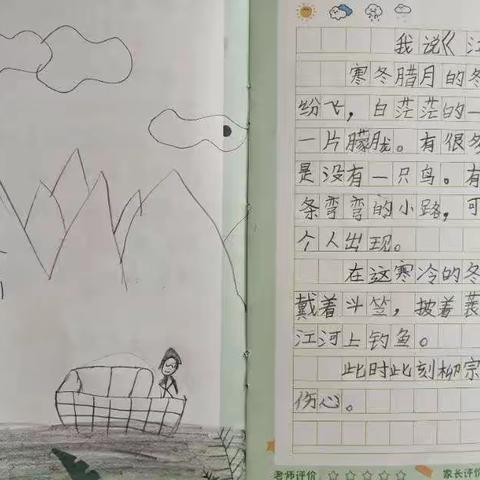 我说《江
寒冬腊月的冬
纷飞，白茫茫的一
一片朦胧。有很多
是没有一只鸟。有
条弯弯的小路，可
个人出现。
在这寒冷的冬
戴着斗笠，披着蓑
江河上钓鱼。
此时此刻柳宗
伤心。
老师评价 家长评价